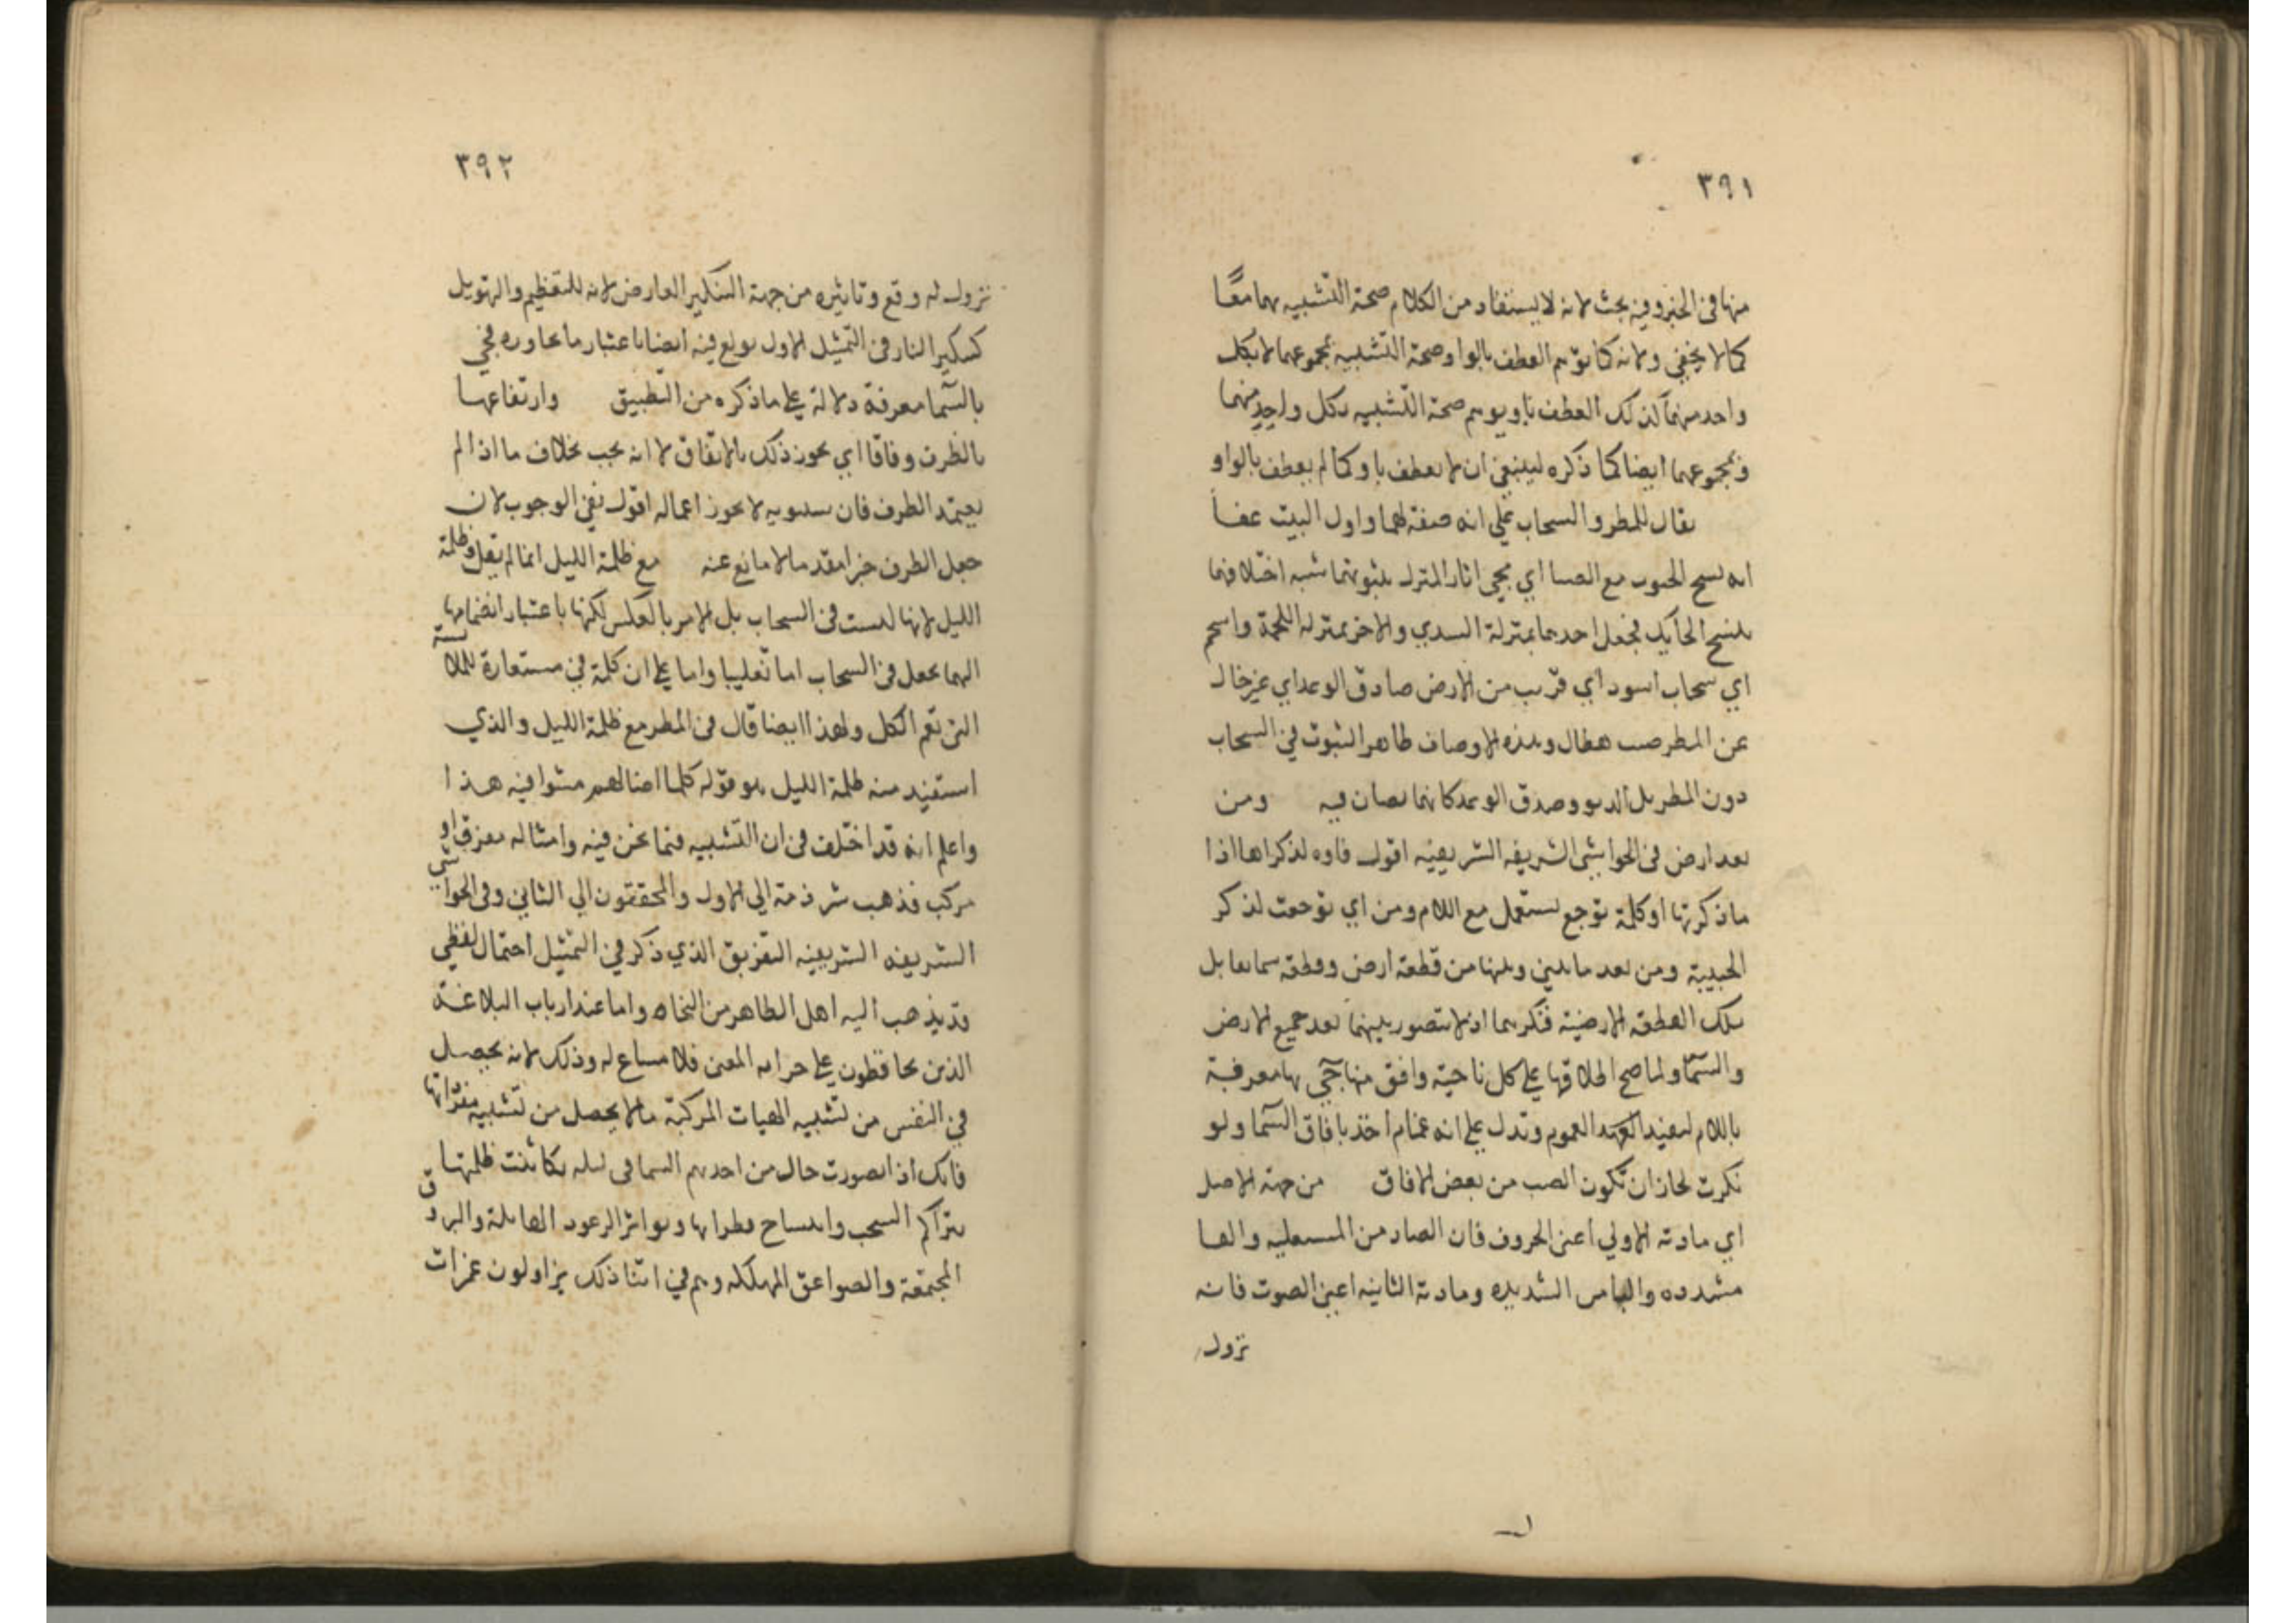 ٣٩١
منها فى الخبر وفيه بحث لانه لا يستفاد من الكلام صحة التشبيه بهما معًا
كما لا يخفى ولانه كما توهم العطف بالواو صحة التشبيه بمجموعهما لا بكل
واحد منهما كذلك العطف باو يوهم صحة التشبيه بكل واحد منهما
وبمجموعهما ايضا كما ذكره لينبغى ان لا يعطف باو كما لم يعطف بالواو
يقال للمطر والسحاب على انه صفة لهما واول البيت عفا
ايه نسج الجنوب مع الصبا اي محى اثار المنزل شبه اختلافهما
بنسج الحايك فجعل احدهما بمنزلة السدي والاخر بمنزلة اللحمة واسحم
اي سحاب اسود اي قريب من الارض صادق الوعد اي غير خال
عن المطر صيب هطال وهذه الاوصاف ظاهر الثبوت في السحاب
دون المطر بل الدنو وصدق الوعد كانهما نصان فيه ومن
بعد ارض فى الحواشى الشريفه الشريفيه اقول فاوه لذكراها اذا
ما ذكرتها اوكلمة توجع تستعمل مع اللام ومن اي توجعت لذكر
الحبيبة ومن بعد ما بينى وبينها من قطعة ارض وقطعة سما تقابل
تلك القطعة الارضية فنكرهما اذ لا يتصور بينهما بعد جميع الارض
والسما ولما صح اطلاقها على كل ناحية وافق منها جي بها معرفة
باللام لتفيد العموم وتدل على انه غمام اخذ بافاق السما ولو
نكرت لجاز ان تكون الصيب من بعض الافاق من جهة الاصل
اي مادته الاولي اعنى الحروف فان الصاد من المستعليه واليا
مشدده والبا من الشديده ومادته الثانيه اعنى الصوت فانه
نزول
٣٩٢
نزول له وقع وتاثيره من جهة التنكير العارض لانه للتعظيم والتهويل
كتنكير النار فى التمثيل الاول بولغ فيه ايضا باعتبار ما يجاوره فجي
بالسما معرفة دلالة على ما ذكره من التطبيق وارتفاعها
بالظرف وفاقا اي يجوز ذلك بالاتفاق لا انه يجب بخلاف ما اذا لم
يعتمد الظرف فان سيبويه لا يجوز اعماله اقول نفى الوجوب لان
جعل الظرف خبرا مقدما لا مانع عنه مع ظلمة الليل انما لم يقل وظلمة
الليل لانها ليست فى السحاب بل الامر بالعكس لكنها باعتبار انضمامها
اليهما يجعل فى السحاب اما تغليبا واما على ان كلمة في مستعارة للملابسة
التى تعم الكل ولهذا ايضا قال فى المطر مع ظلمة الليل والذي
استفيد منه ظلمة الليل هو قوله كلما اضا لهم مشوا فيه هذا
واعلم انه قد اختلف فى ان التشبيه فيما نحن فيه وامثاله مفرق او
مركب فذهب شرذمة الى الاول والمحققون الي الثاني وفى الحواشي
الشريفه الشريفيه التفريق الذي ذكر في التمثيل احتمال لفظي
قد يذهب اليه اهل الظاهر من النحاه واما عند ارباب البلاغة
الذين يحافظون على المعنى فلا مساغ له وذلك لانه يحصل
في النفس من تشبيه الهيات المركبة ما لا يحصل من تشبيه مفرداتها
فانك اذا تصورت حال من اخذتهم السما فى ليله تكاثفت ظلمتها
بتراكم السحب وانتساج قطراتها وتواتر الرعود الهايلة والبروق
المجتمعة والصواعق المهلكله وهم في اثنا ذلك يزاولون غمرات